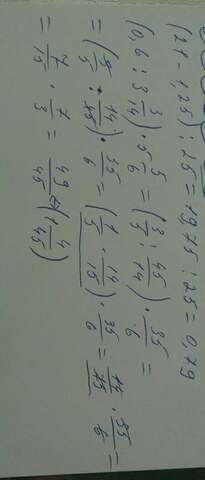 (21 - 1,25) : 25 = 19,75 : 25 = 0,79
(0,6 : 3 3/14) · 5 5/6 = (3/5 : 45/14) · 35/6 =
= (3/5 · 14/45) · 35/6 = (1/5 · 14/15) · 35/6 = 14/75 · 35/6 =
= 7/15 · 7/3 = 49/45 = (1 4/45)